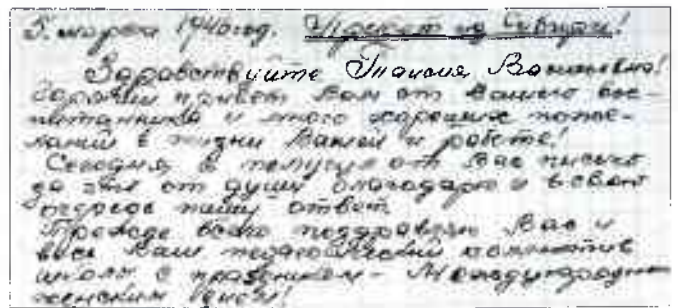 5. марта 1940 год. Привет из
Здравствуйте Таисия Васильевна!
Горячий привет Вам от Вашего вос-
питанника и много хороших поже-
ланий в жизни Вашей и работе!
Сегодня я получил от Вас письмо
за что от души благодарю и в свою
очередь пишу ответ.
Прежде всего поздравляю Вас и
весь Ваш педагогический коллектив
школы с праздником - Международным
женским днём!